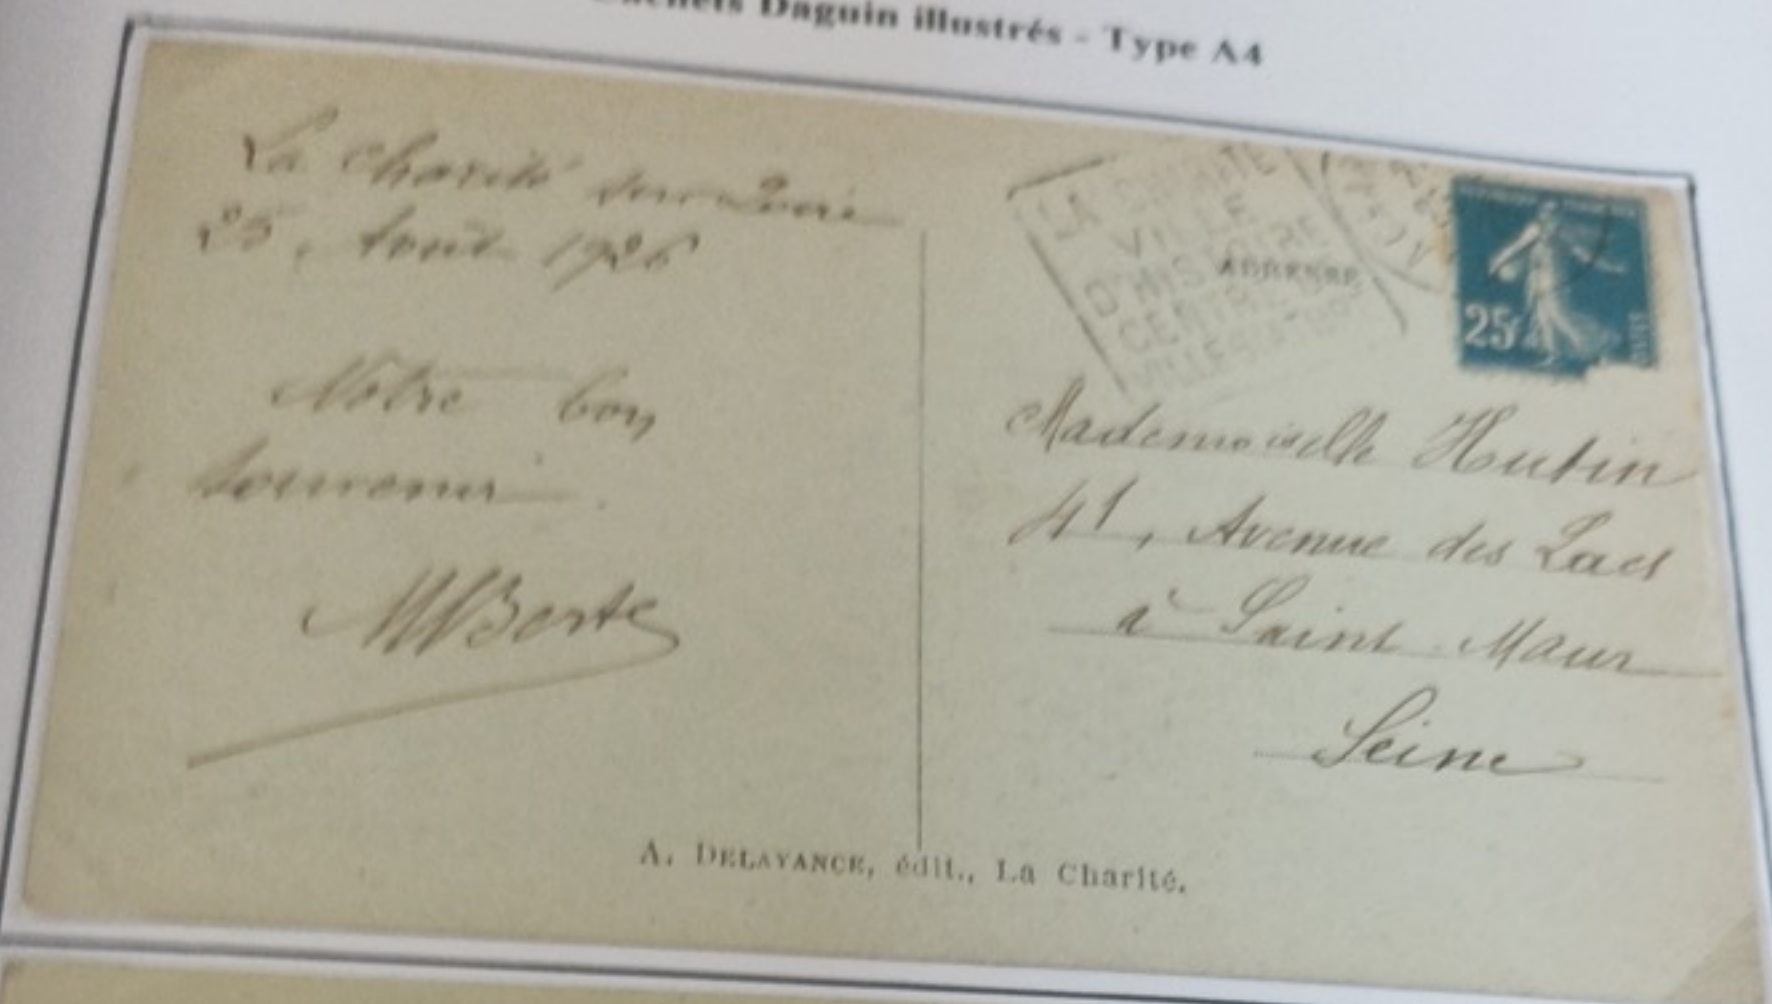 Cachets Daguin illustrés - Type A4
La Charité sur Loire
25, Août 1926
Notre bon
souvenir
LA CHARITE
VILLE
D'HISTOIRE
CENTRE DE
VILLEGIATURE
ADRESSE
25c
Mademoiselle Hutin
41, Avenue des Lacs
à Saint-Maur
Seine
A. DELAYANCE, édit., La Charité.